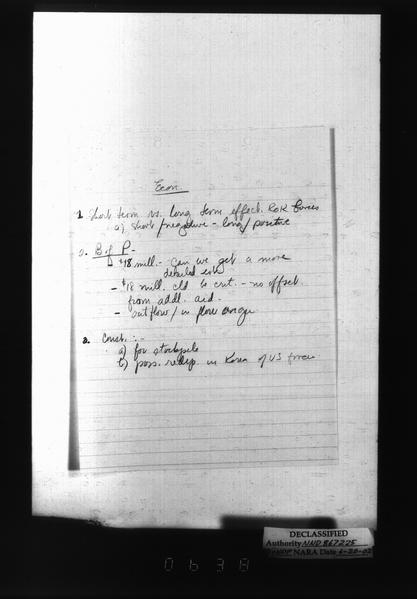 Econ
1. Short term vs. long term effect. ROK forces
a) short/negative - long/positive
2. B of P -
$18 mill. - Can we get a more
detailed est
- $18 mill. cld be crit. - no offset
from addl. aid.
- outflow/inflow
3. Const. :-
a) for stockpile
b) poss. redep. in Korea of US forces
DECLASSIFIED
Authority NND 867225
NARA Date 6-20-02
0638